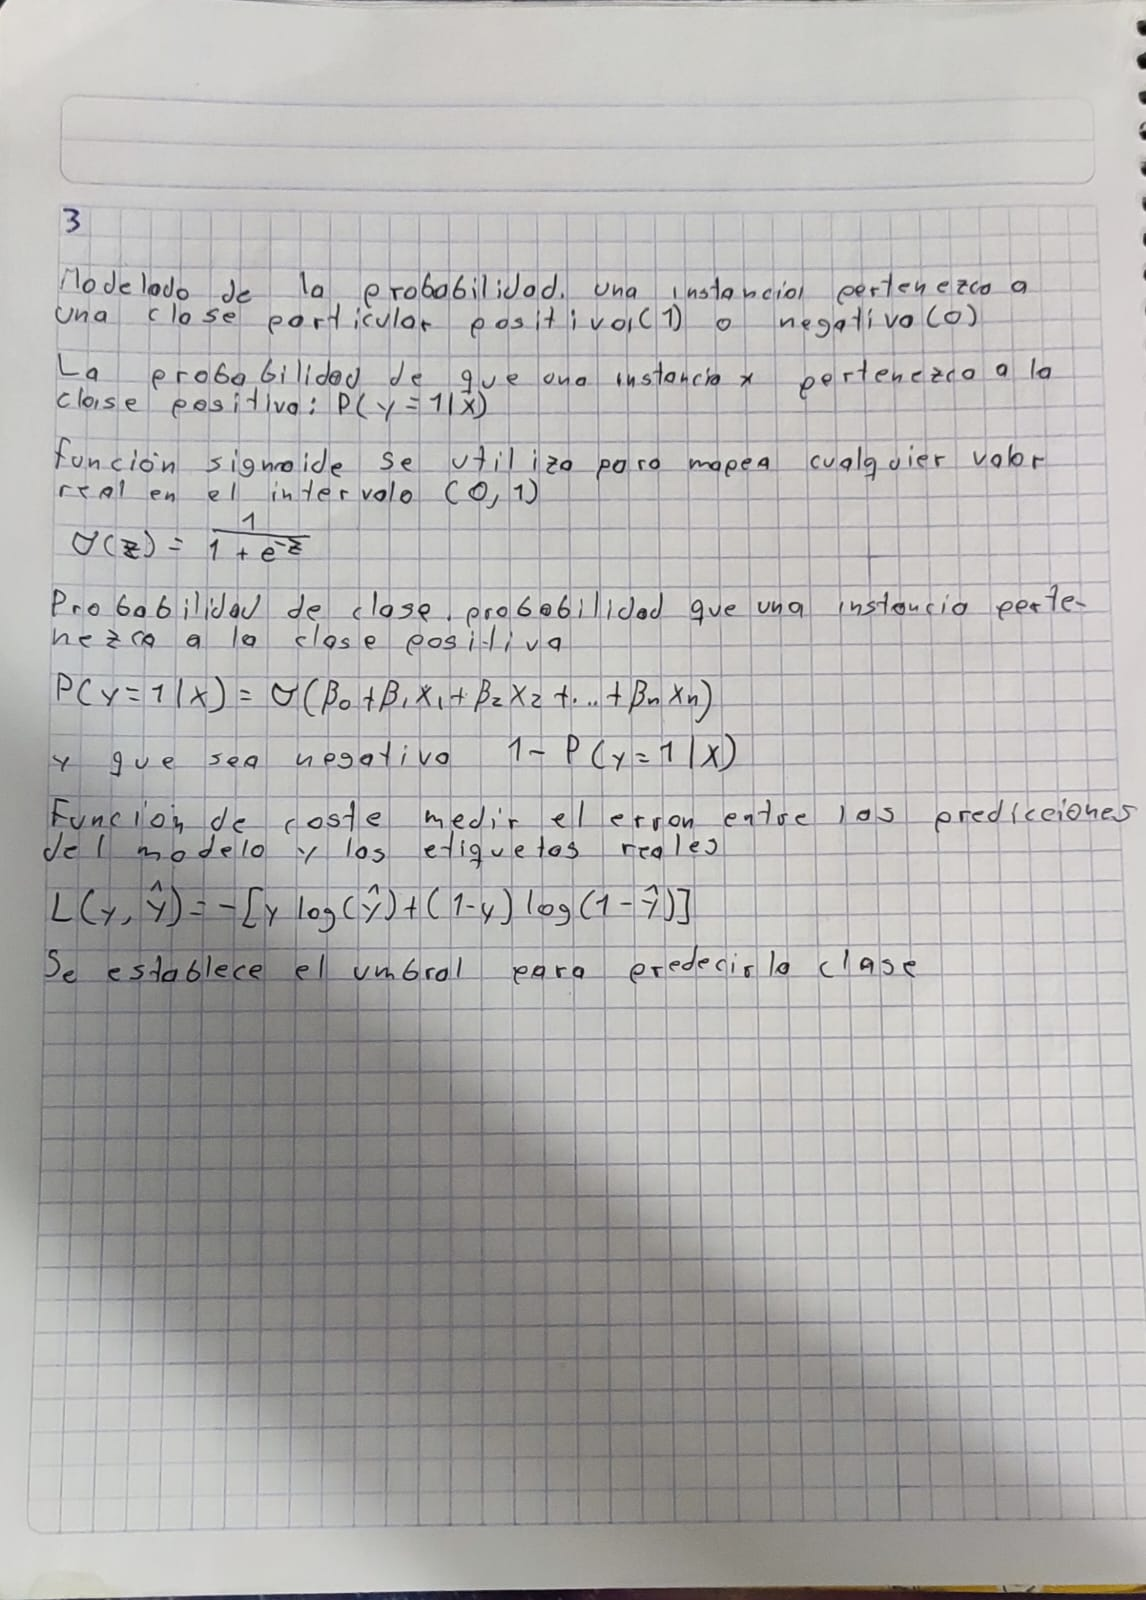 3
Modelado de la probabilidad. una instancia pertenezca a
una clase particular positiva(1) o negativa(0)
La probabilidad de que una instancia x pertenezca a la
clase positiva: P(y=1|x)
función sigmoide se utiliza para mapea cualquier valor
real en el intervalo (0,1)
σ(z) = 1 / (1 + e^-z)
Probabilidad de clase. probabilidad que una instancia perte-
nezca a la clase positiva
P(y=1|x) = σ(β₀+β₁x₁+β₂x₂+...+βₙxₙ)
y que sea negativa 1-P(y=1|x)
Función de coste medir el erron entre las prediccciones
del modelo y las etiquetas reales
L(y, ŷ) = -[y log(ŷ)+(1-y) log(1-ŷ)]
Se establece el umbral para predecir la clase